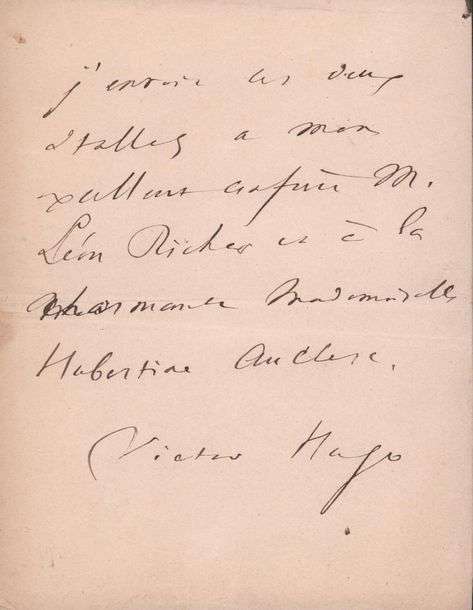 j'envoie ces deux
stalles à mon
excellent confrère M.
Léon Richer et à la
charmante Mademoiselle
Hubertine Auclerc.
Victor Hugo